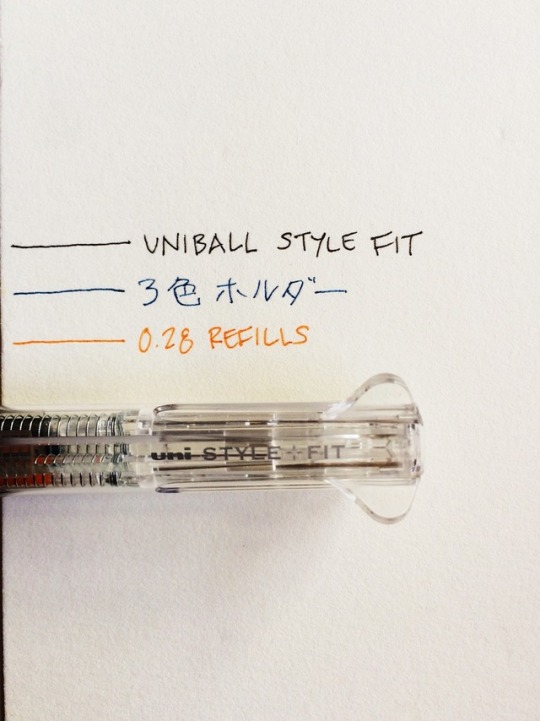 UNIBALL STYLE FIT
3色 ホルダー
0.28 REFILLS
uni STYLE+FIT